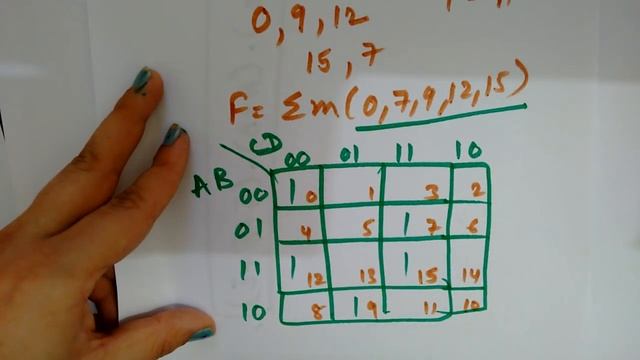 0, 9, 12
15, 7
F = Σm(0,7,9,12,15)
CD
00 01 11 10
AB
00 1 0 1 3 2
01 4 5 1 7 6
11 1 12 13 1 15 14
10 8 1 9 11 10